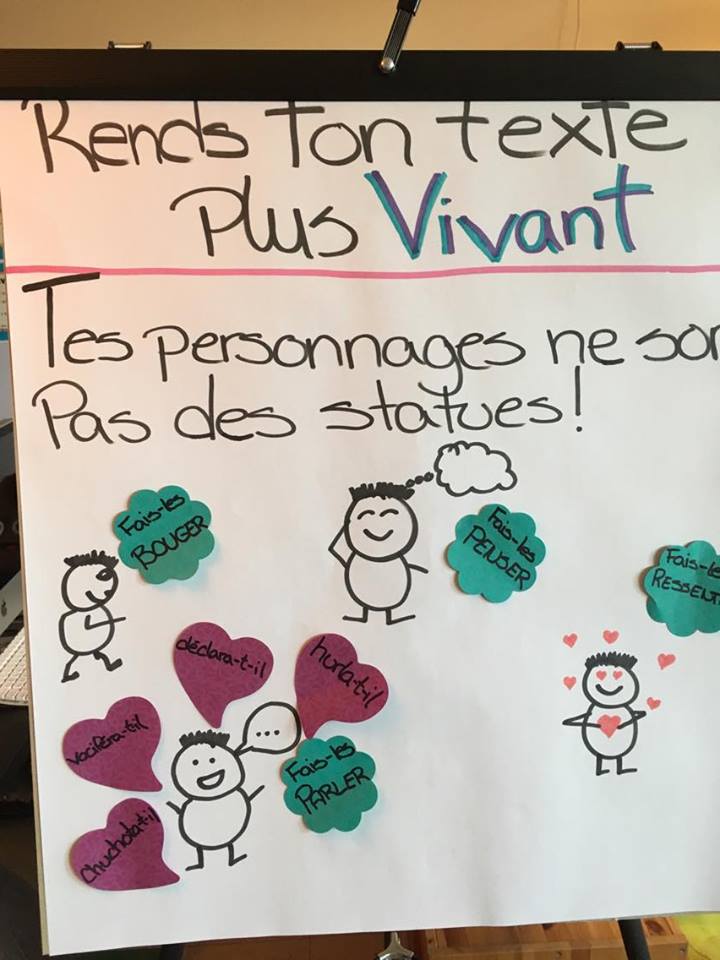 Rends ton texte
Plus Vivant
Tes personnages ne son
Pas des statues!
Fais-les
BOUGER
Fais-les
PENSER
Fais-le
RESSENT
déclara-t-il
hurla-t-il
vociféra-t-il
chuchota-t-il
...
Fais-les
PARLER